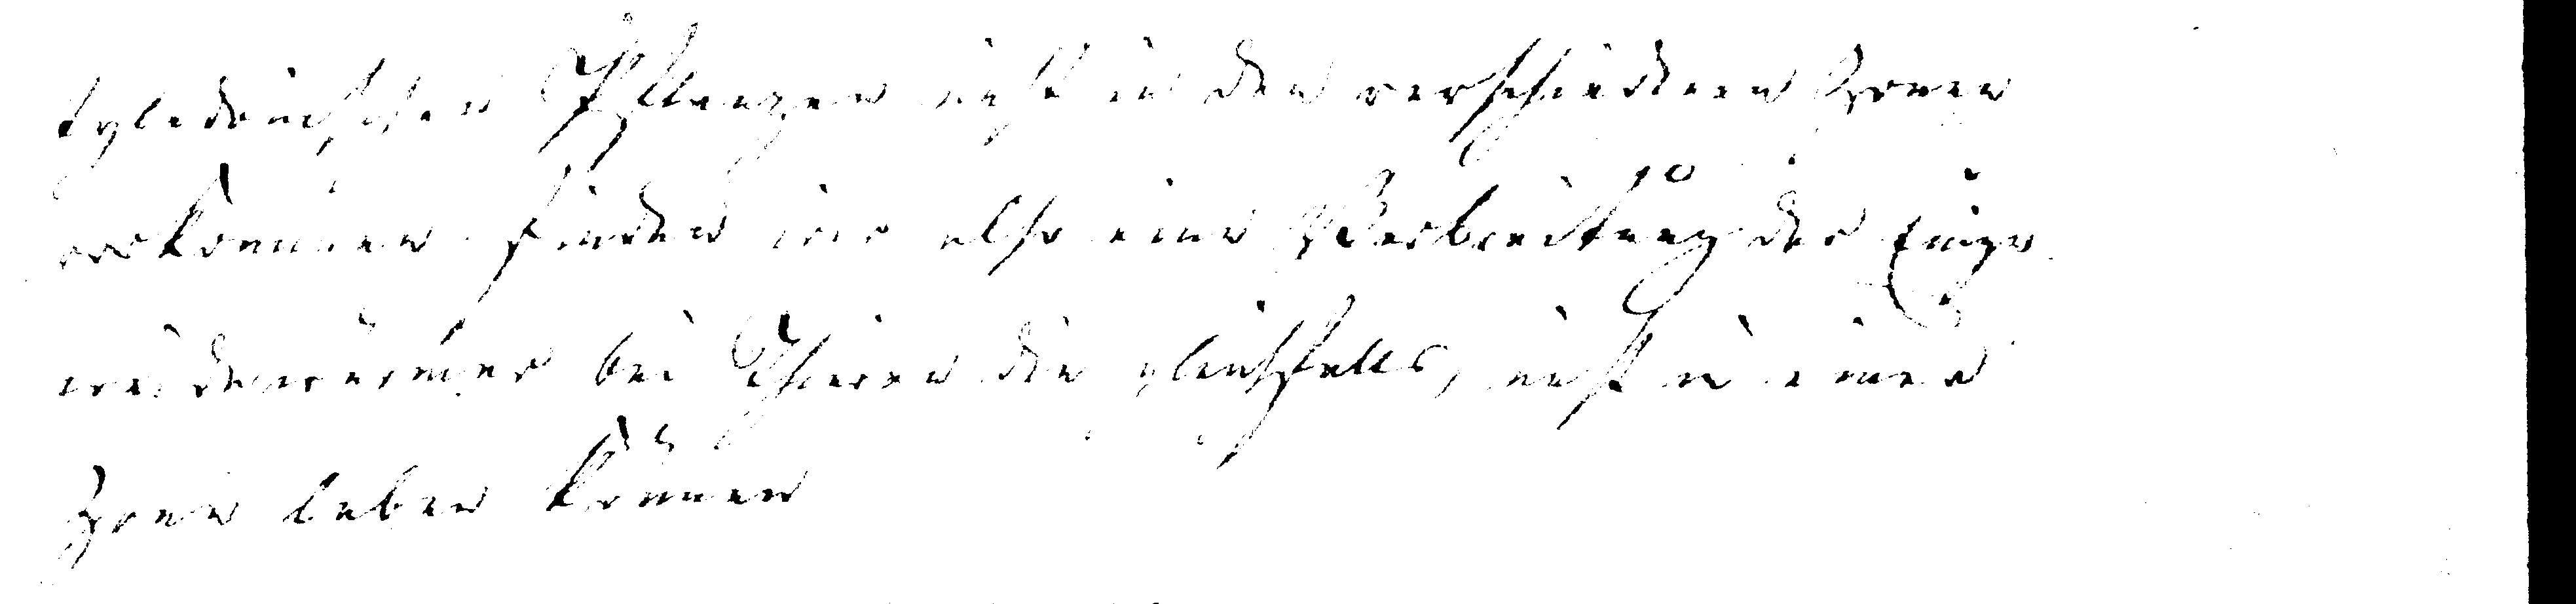 tyledonischen Pflanzen nicht in den verschiednen Zonen
vorkommen. finden wir also eine Verbreitung der Einge
weidewürmer bei Thieren die gleichfalls, nicht in einer
Zone leben können